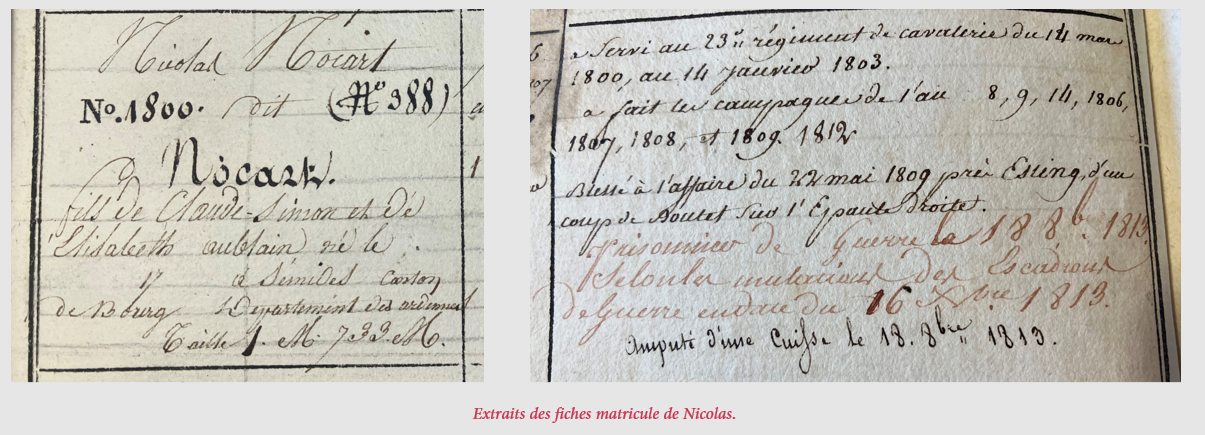 Nicolas Nocart
N° 1800. dit (N° 388)
Nocart.
fils de Claude-Simon et de
Elisabeth aublain né le
17 à Sémides Canton
de Bourg Département des ardennes
Taille 1. M. 733. M.
a Servi au 23e régiment de cavalerie du 14 mars
1800, au 14 Janvier 1803.
a fait les campagnes de l'an 8, 9, 14, 1806,
1807, 1808, et 1809. 1812
Blessé à l'affaire du 22 mai 1809 près Esling, d'un
coup de Boulet sur l'Epaule Droite.
Prisonnier de Guerre le 18 8b. 1813.
Selon les mutations des Escadrons
de Guerre en date du 16 Xbre 1813
Amputé d'une Cuisse le 18. 8bre 1813.
Extraits des fiches matricule de Nicolas.